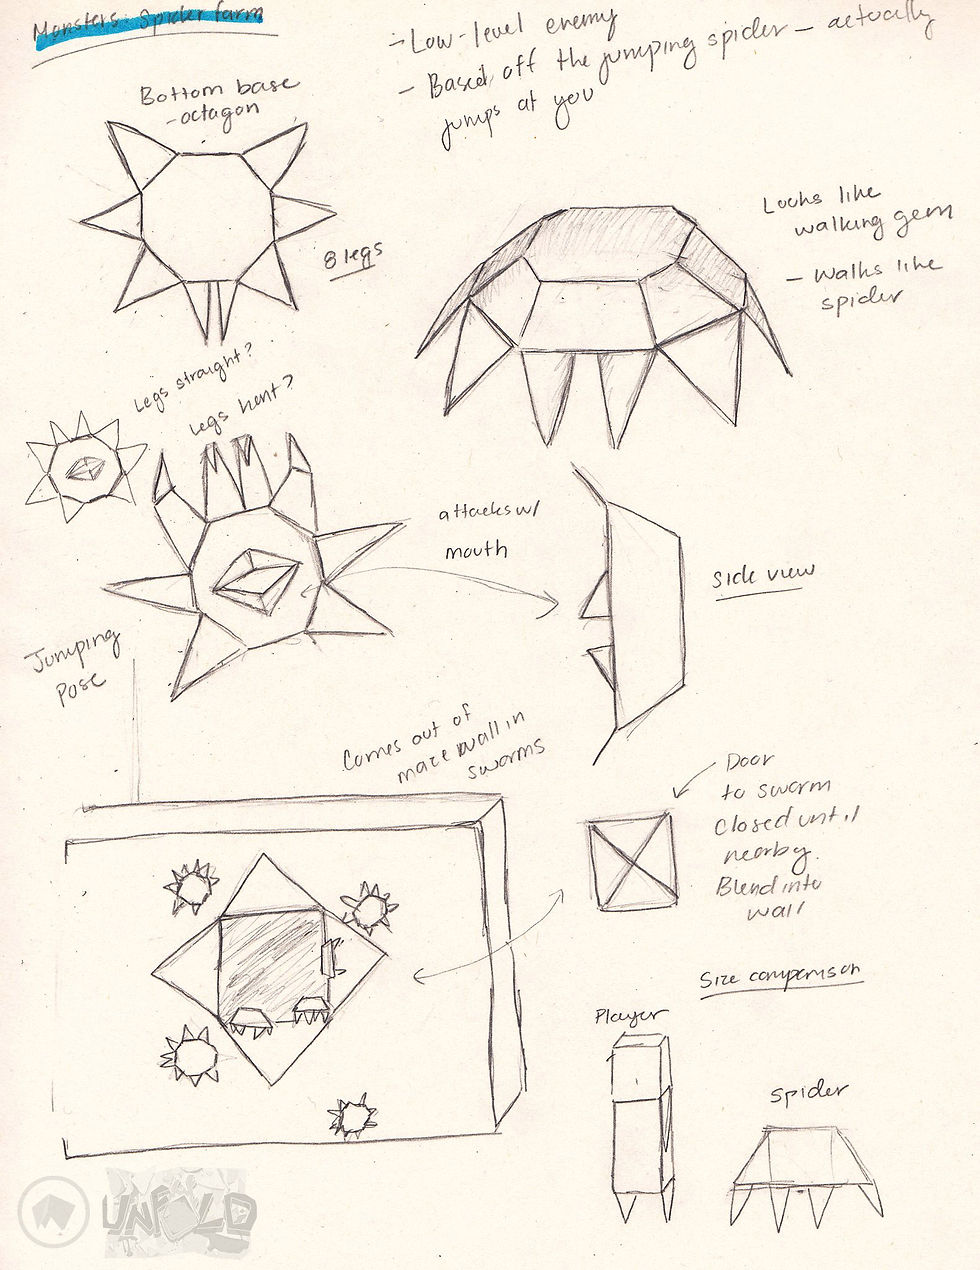 Monsters: Spider farm
- Low-level enemy
- Based off the jumping spider - actually
jumps at you
Bottom base
- octagon
8 legs
Looks like
walking gem
- Walks like
spider
Legs straight?
Legs bent?
attacks w/
mouth
Side view
Jumping
pose
Comes out of
maze wall in
swarms
Door
to swarm
Closed until
nearby.
Blend into
wall
Size comparison
Player
Spider
UNFOLD